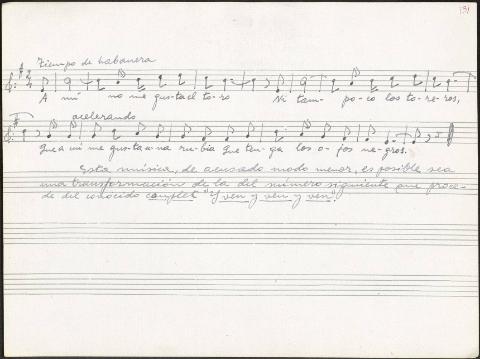 131
Tiempo de habanera
A mi no me gus-ta el to-ro Ni tam-po-co los to-re-ros,
acelerando
Que a mi me gus-ta u-na ru-bia Que ten-ga los o-jos ne-gros.
Esta música, de acusado modo menor, es posible sea
una transformación de la del número siguiente que proce-
de del conocido couplet "Y ven y ven y ven".